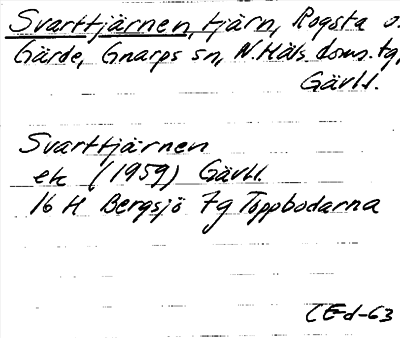 Svarttjärnen, tjärn, Rogsta o.
Gärde, Gnarps sn, N. Häls. doms. tg,
Gävl.
Svarttjärnen
ek (1959) Gävbl.
16 H Bergsjö 7g Toppbodarna
CEd-63